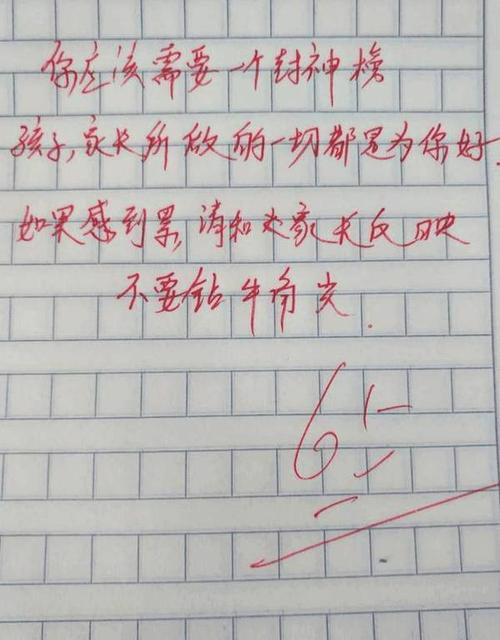 你应该需要一个封神榜
孩子,家长所做的一切都是为你好.
如果感到累,请和家长反映
不要钻牛角尖.
6